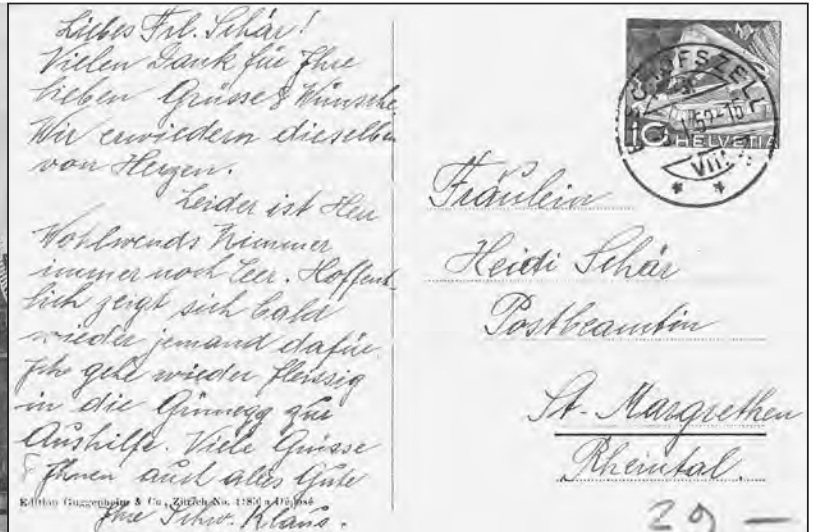 Liebes Frl. Schär!
Vielen Dank für Ihre
lieben Grüsse & Wünsche
Wir erwiedern dieselben
von Herzen.
Leider ist Herr
Wohlwends Zimmer
immer noch leer. Hoffent
lich zeigt sich bald
wieder jemand dafür.
Ich gehe wieder fleissig
in die zur
Aushilfe. Viele Grüsse
Ihnen auch alles Gute
Ihre Schw. Klaus.
Edition Guggenheim & Co., Zürich No. Déposé
BISCHOFSZELL
52-15
VIII
10
HELVETIA
Fräulein
Heidi Schär
Postbeamtin
St. Margrethen
Rheintal.
29 —